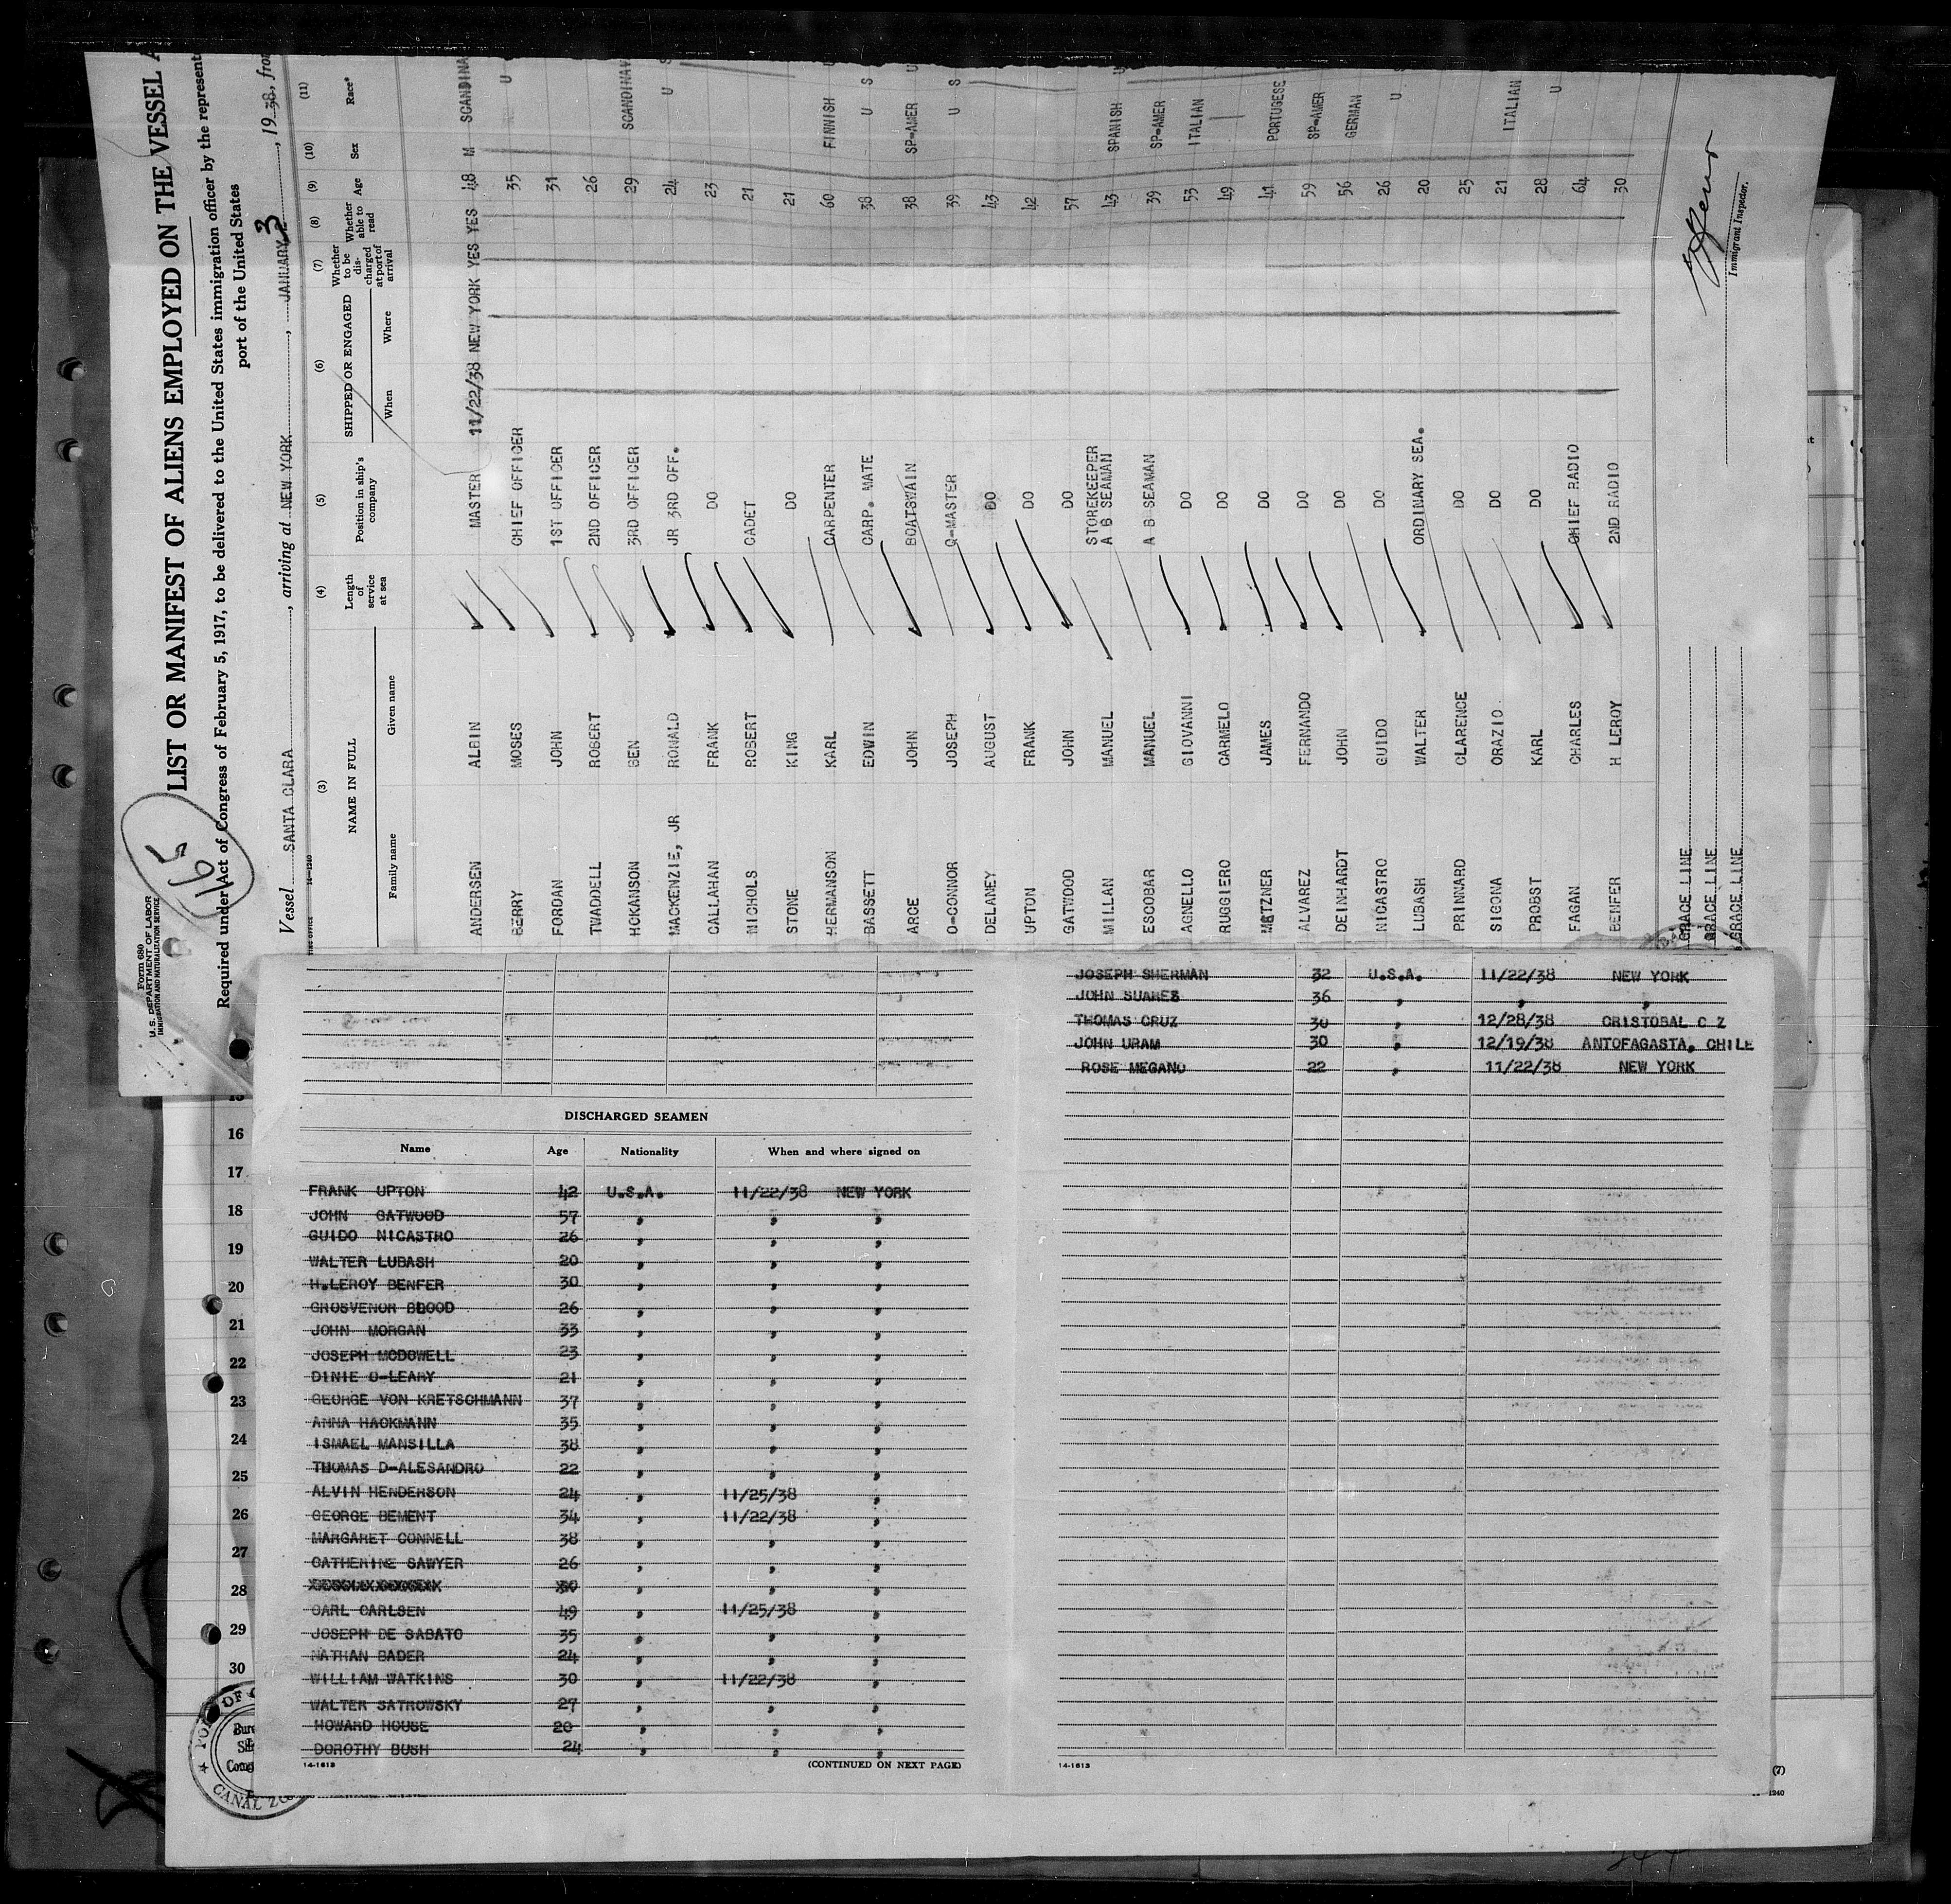 165
Form 680
U.S. DEPARTMENT OF LABOR
IMMIGRATION AND NATURALIZATION SERVICE
LIST OR MANIFEST OF ALIENS EMPLOYED ON THE VESSEL
Required under Act of Congress of February 5, 1917, to be delivered to the United States immigration officer by the represent
port of the United States
Vessel SANTA CLARA, arriving at NEW YORK, JANUARY 3, 1938, from
14-1240
(3) (4) (5) (6) (7) (8) (9) (10) (11)
NAME IN FULL Length of service at sea Position in ship's company SHIPPED OR ENGAGED Whether to be discharged at port of arrival Whether able to read Age Sex Race*
Family name Given name When Where
ANDERSEN ALBIN MASTER 11/22/38 NEW YORK YES YES 48 M SCANDINA
BERRY MOSES CHIEF OFFICER 35 U
FORDAN JOHN 1ST OFFICER 31
TWADDELL ROBERT 2ND OFFICER 26
HCKANSON BEN 3RD OFFICER 29 SCANDINAV
MACKENZIE, JR RONALD JR 3RD OFF. 24 U S
CALLAHAN FRANK DO 23
NICHOLS ROBERT CADET 21
STONE KING DO 21
HERMANSON KARL CARPENTER 60 FINNISH
BASSETT EDWIN CARP. MATE 38 U S
ARCE JOHN BOATSWAIN 38 SP-AMER
O-CONNOR JOSEPH Q-MASTER 39 U S
DELANEY AUGUST DO 43
UPTON FRANK DO 42
GATWOOD JOHN DO 57
MILLAN MANUEL STOREKEEPER A B SEAMAN 43 SPANISH
ESCOBAR MANUEL A B SEAMAN 39 SP-AMER
AGNELLO GIOVANNI DO 53 ITALIAN
RUGGIERO CARMELO DO 49
METZNER JAMES DO 41 PORTUGESE
ALVAREZ FERNANDO DO 59 SP-AMER
DEINHARDT JOHN DO 56 GERMAN
NICASTRO GUIDO DO 26 U
LUBASH WALTER ORDINARY SEA. 20
PRINNARD CLARENCE DO 25
SIGONA ORAZIO DO 21 ITALIAN
PROBST KARL DO 28 U
FAGAN CHARLES CHIEF RADIO 64
BENFER H LEROY 2ND RADIO 30
GRACE LINE
GRACE LINE
GRACE LINE
Immigrant Inspector.
DISCHARGED SEAMEN
Name Age Nationality When and where signed on
FRANK UPTON 42 U.S.A. 11/22/38 NEW YORK
JOHN GATWOOD 57 , , ,
GUIDO NICASTRO 26 , , ,
WALTER LUBASH 20 , , ,
H.LEROY BENFER 30 , , ,
GROSVENOR BLOOD 26 , , ,
JOHN MORGAN 33 , , ,
JOSEPH MCDOWELL 23 , , ,
DINIE O-LEARY 21 , , ,
GEORGE VON KRETSCHMANN 37 , , ,
ANNA HACKMANN 35 , , ,
ISMAEL MANSILLA 38 , , ,
THOMAS D-ALESANDRO 22 , , ,
ALVIN HENDERSON 24 , 11/25/38 ,
GEORGE BEMENT 34 , 11/22/38 ,
MARGARET CONNELL 38 , , ,
CATHERINE SAWYER 26 , , ,
CARL CARLSEN 49 , 11/25/38 ,
JOSEPH DE SABATO 35 , , ,
NATHAN BADER 24 , , ,
WILLIAM WATKINS 30 , 11/22/38 ,
WALTER SATROWSKY 27 , , ,
HOWARD HOUSE 20 , , ,
DOROTHY BUSH 24 , , ,
14-1613 (CONTINUED ON NEXT PAGE)
JOSEPH SHERMAN 32 U.S.A. 11/22/38 NEW YORK
JOHN SUAREZ 36 , , ,
THOMAS CRUZ 30 , 12/28/38 CRISTOBAL C Z
JOHN URAM 30 , 12/19/38 ANTOFAGASTA, CHILE
ROSE MEGANO 22 , 11/22/38 NEW YORK
14-1613
(7)
1240
16
17
18
19
20
21
22
23
24
25
26
27
28
29
30
CANAL ZO